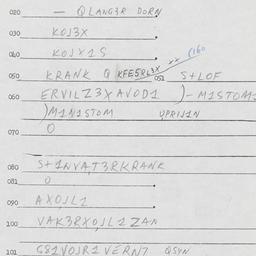 020 — QLANG3R DORN
030 KOJ3X
040 KOJX1S
050 KRANK Q KFE5RL3X 051 S+LOF
xx (160
060 ERVILZ3XAVOD1 )-M1STOM
)M1N1STOM UPRIJIN
070 O
080 S+1NVAT3RKRANK
081 O
090 AXOJL1
100 VAK3RXOJL1ZAN
101 VERN7 QSYN